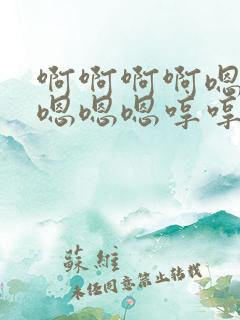 啊啊啊啊嗯
嗯嗯嗯哼哼
蘇維
未经同意禁止转载